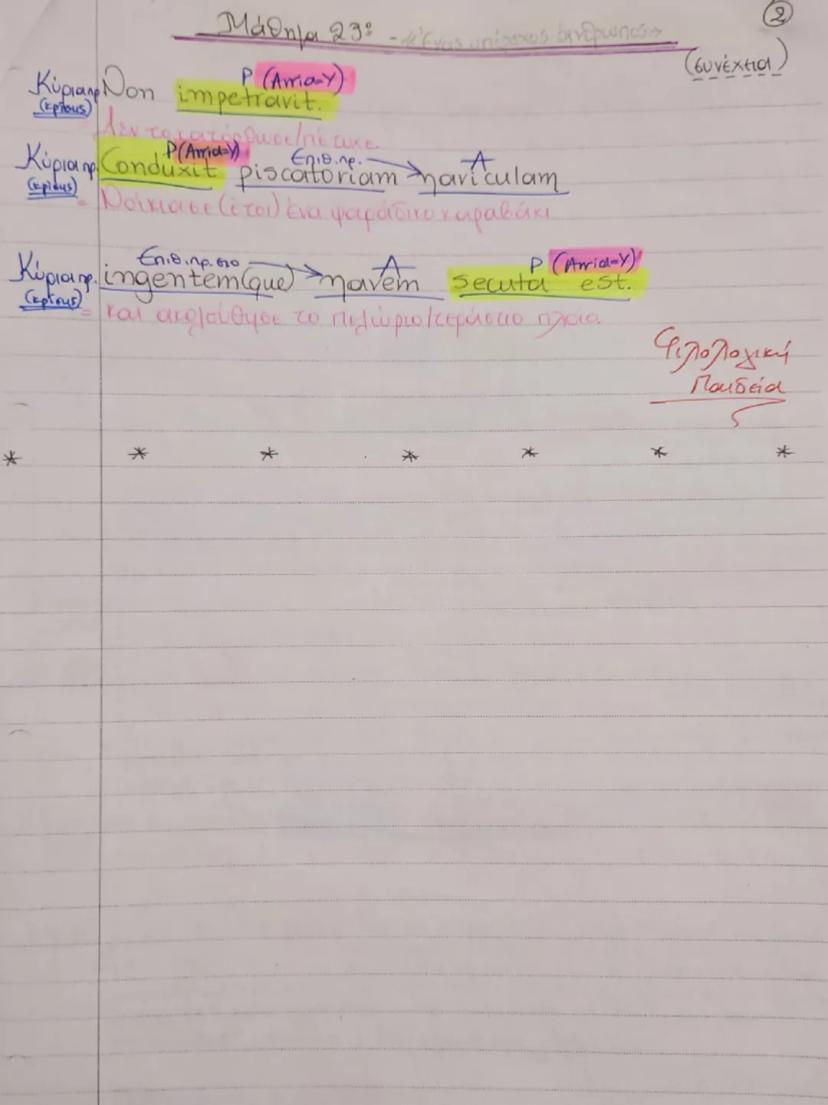 Μάθημα 23ο - «Ένας υπέροχος άνθρωπος»
②
(συνέχεια)
Ρ (Arria=Υ)
Κύρια πρ. Non impetravit.
(κρίσης)
Δεν το κατόρθωσε/πέτυχε.
Ρ (Arria=Υ) Επιθ. πρ. Α
Κύρια πρ. Conduxit piscatoriam naviculam
(κρίσης)
= Νοίκιασε (έτσι) ένα ψαράδικο καραβάκι
Επιθ. πρ. στο Α Ρ (Arria=Υ)
Κύρια πρ. ingentem(que) navem secuta est.
(κρίσης)
= και ακολούθησε το πελώριο/τεράστιο πλοίο.
Φιλολογική
Παιδεία
* * * * * * *